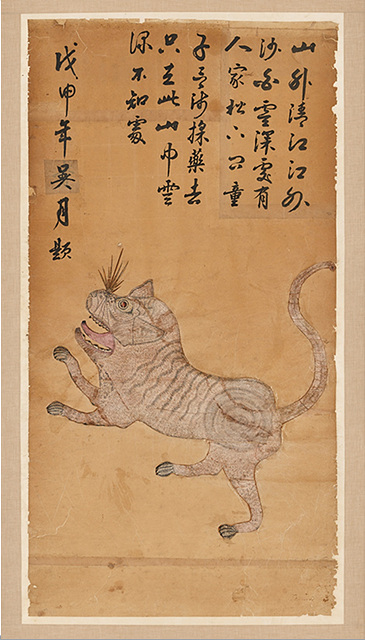 山外清江江外
沙白雲深處有
人家松下問童
子言師採藥去
只在此山中雲
深不知處
戊申年吳月題